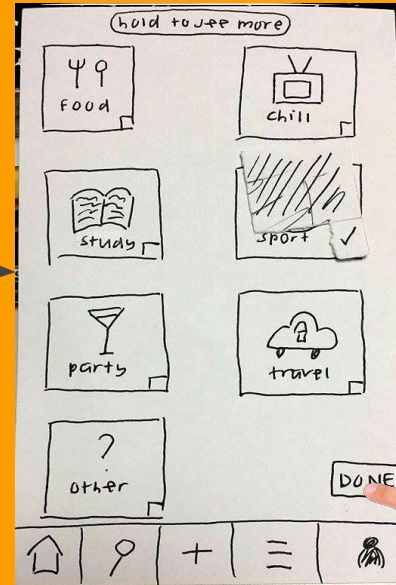 hold to see more
Food
chill
study
sport
party
travel
?
other
DONE